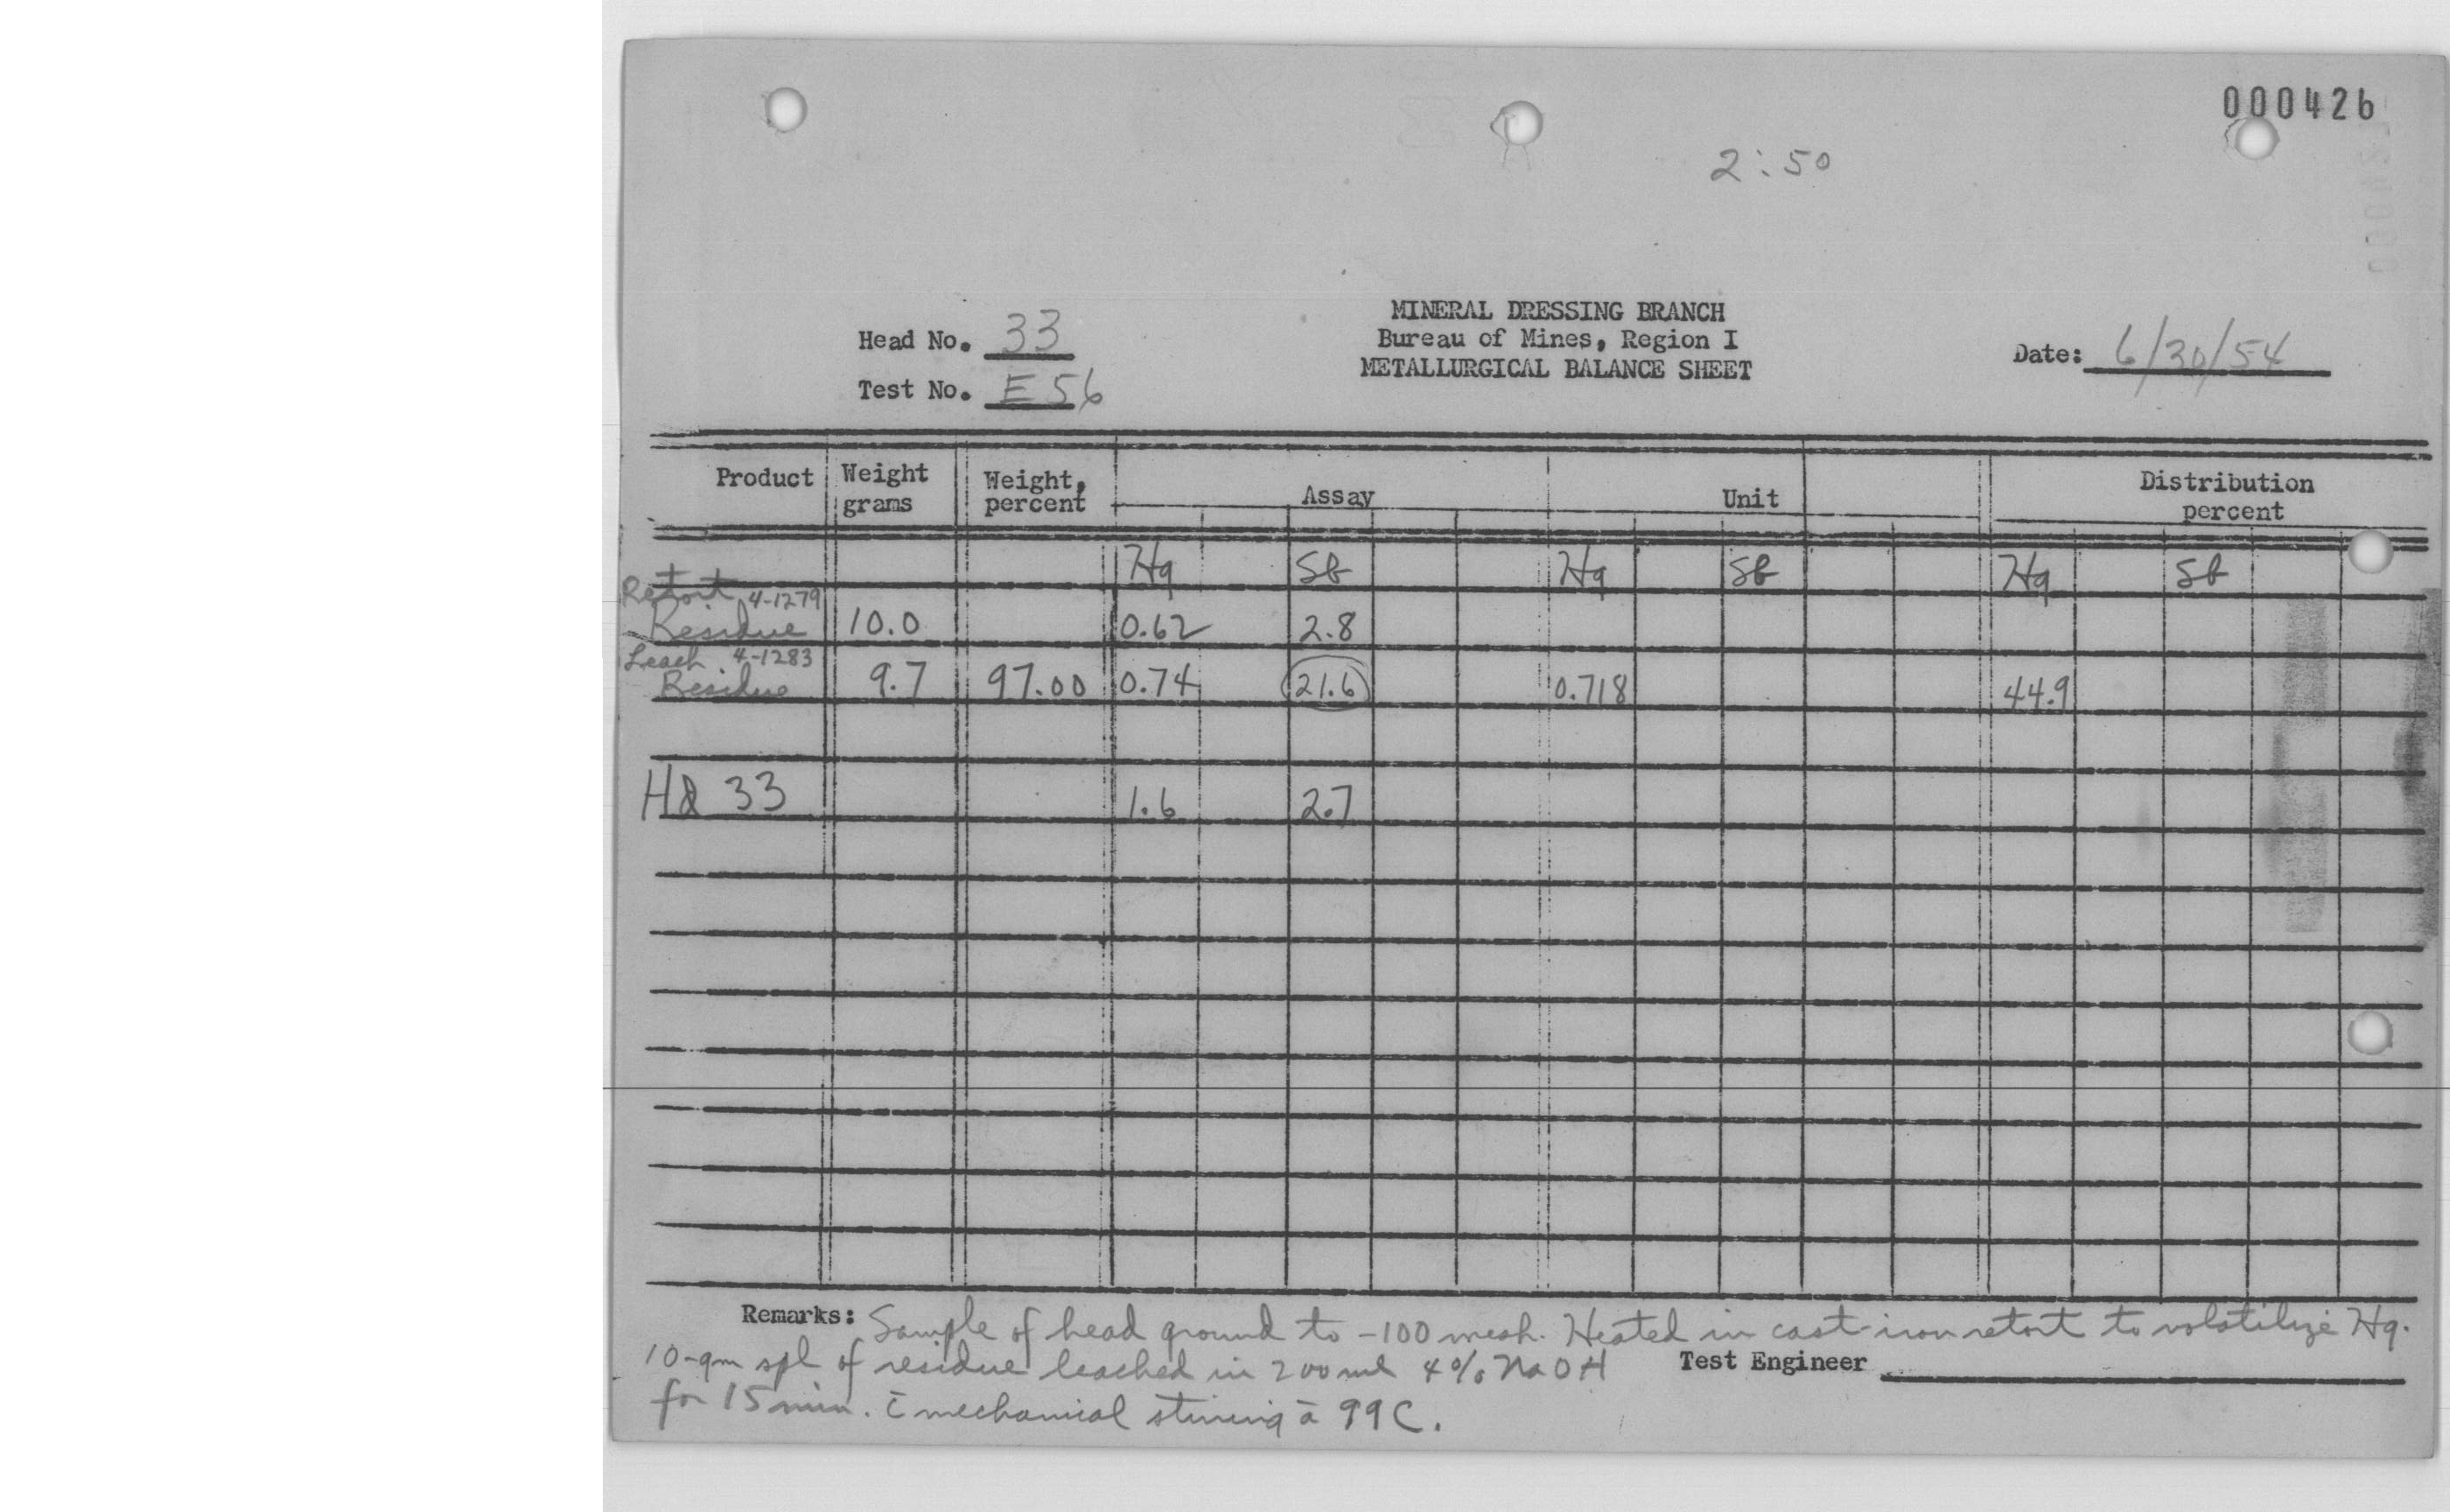 000426
2:50
MINERAL DRESSING BRANCH
Head No. 33
Bureau of Mines, Region I
Date: 6/30/54
METALLURGICAL BALANCE SHEET
Test No. E56
Product Weight grams Weight, percent Assay Unit Distribution percent
Hg Sb Hg Sb Hg Sb
Retort 4-1279
Residue 10.0 0.62 2.8
Leach 4-1283
Residue 9.7 97.00 0.74 21.6 0.718 44.9
Hd 33 1.6 2.7
Remarks: Sample of head ground to -100 mesh. Heated in cast-iron retort to volatilize Hg.
10-gm spl of residue leached in 200 ml 4% NaOH
Test Engineer
for 15 min. c̄ mechanical stirring ā 99C.